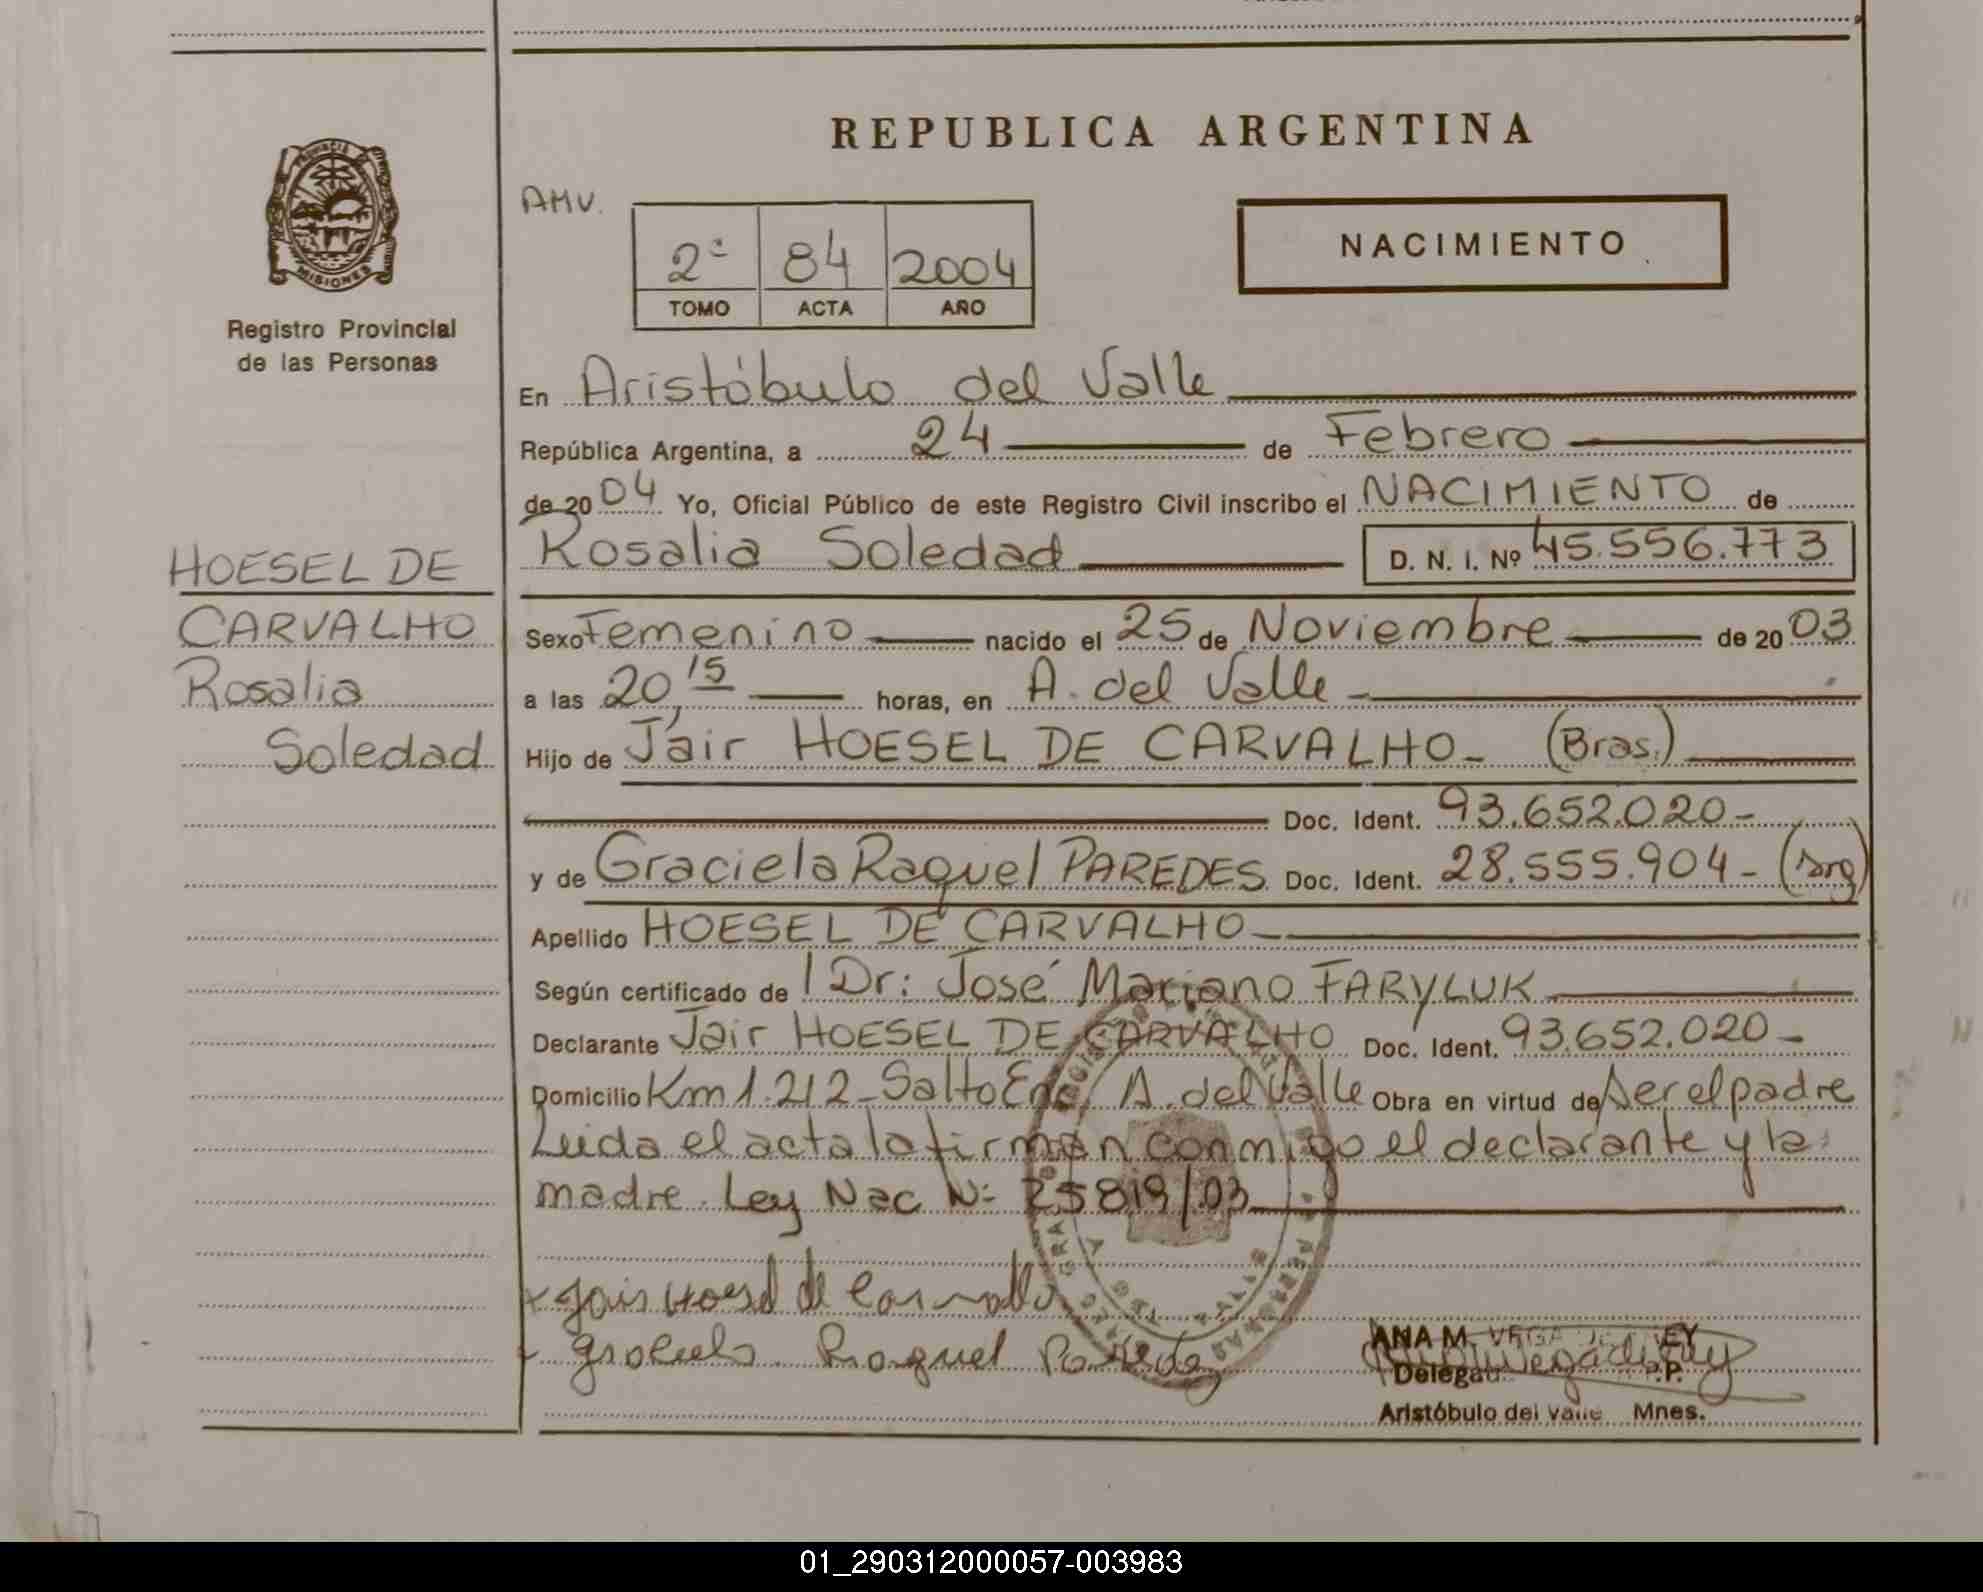 REPUBLICA ARGENTINA
PROVINCIA DE
MISIONES
Registro Provincial
de las Personas
AMV.
2º 84 2004
TOMO ACTA AÑO
NACIMIENTO
En Aristóbulo del Valle
República Argentina, a 24 de Febrero
de 20 04 Yo, Oficial Público de este Registro Civil inscribo el NACIMIENTO de
Rosalia Soledad D. N. I. Nº 45.556.773
HOESEL DE
CARVALHO
Rosalia
Soledad
Sexo Femenino nacido el 25 de Noviembre de 20 03
a las 20,15 horas, en A. del Valle
Hijo de Jair HOESEL DE CARVALHO- (Bras.)
Doc. Ident. 93.652.020-
y de Graciela Raquel PAREDES Doc. Ident. 28.555.904- (Arg)
Apellido HOESEL DE CARVALHO-
Según certificado de Dr: José Mariano FARYLUK
Declarante Jair HOESEL DE CARVALHO Doc. Ident. 93.652.020-
Domicilio Km 1.212-Salto Enc. A. del Valle Obra en virtud de Ser el padre
Leida el acta la firman conmigo el declarante y la
madre. Ley Nac Nº 25819/03
x Jair Hoesel de Carvallo
x Graciela Raquel Paredes
ANA M. VEGA DE
Delegad R.P.P.
Aristóbulo del Valle Mnes.
01_290312000057-003983